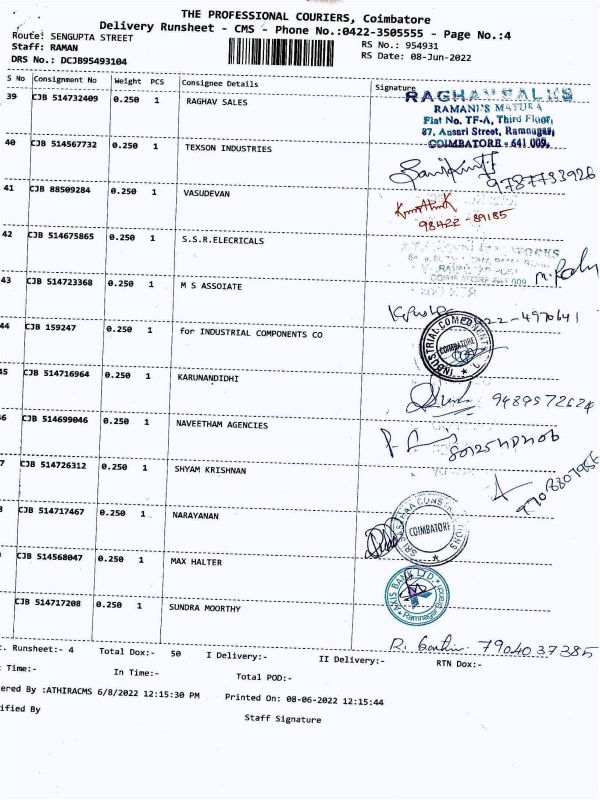 THE PROFESSIONAL COURIERS, Coimbatore
Delivery Runsheet - CMS - Phone No.:0422-3505555 - Page No.:4
Route: SENGUPTA STREET
RS No.: 954931
Staff: RAMAN
RS Date: 08-Jun-2022
DRS No.: DCJB95493104
S No Consignment No Weight PCS Consignee Details Signature
39 CJB 514732409 0.250 1 RAGHAV SALES
RAGHAV SALES
RAMANI'S MAYURA
Flat No. TF-A, Third Floor,
87, Ansari Street, Ramnagar,
COIMBATORE - 641 009.
40 CJB 514567732 0.250 1 TEXSON INDUSTRIES
9787733926
41 CJB 88509284 0.250 1 VASUDEVAN
98422-89185
42 CJB 514675865 0.250 1 S.S.R.ELECRICALS
43 CJB 514723368 0.250 1 M S ASSOIATE
44 CJB 159247 0.250 1 for INDUSTRIAL COMPONENTS CO
INDUSTRIAL COMPONENTS CO
COIMBATORE
45 CJB 514716964 0.250 1 KARUNANDIDHI
9489572624
6 CJB 514699046 0.250 1 NAVEETHAM AGENCIES
7 CJB 514726312 0.250 1 SHYAM KRISHNAN
8 CJB 514717467 0.250 1 NARAYANAN
COIMBATORE
CJB 514568047 0.250 1 MAX HALTER
AXIS BANK LTD.
Ramnagar Branch
CJB 514717208 0.250 1 SUNDRA MOORTHY
7904037385
. Runsheet:- 4 Total Dox:- 50 I Delivery:- II Delivery:- RTN Dox:-
Time:- In Time:- Total POD:-
ered By :ATHIRACMS 6/8/2022 12:15:30 PM Printed On: 08-06-2022 12:15:44
ified By Staff Signature